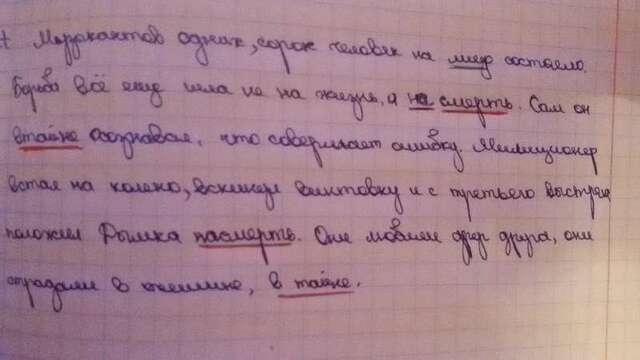 однак, сорок человек на лицо состояло.
Борьба всё ещё шла не на жизнь, а на смерть. Сам он
втайне осознавал, что совершает ошибку. Милиционер
встал на колено, вскинул винтовку и с третьего выстрела
положил Рыжика насмерть. Они любили друг друга, они
страдали в тишине, в тайне.